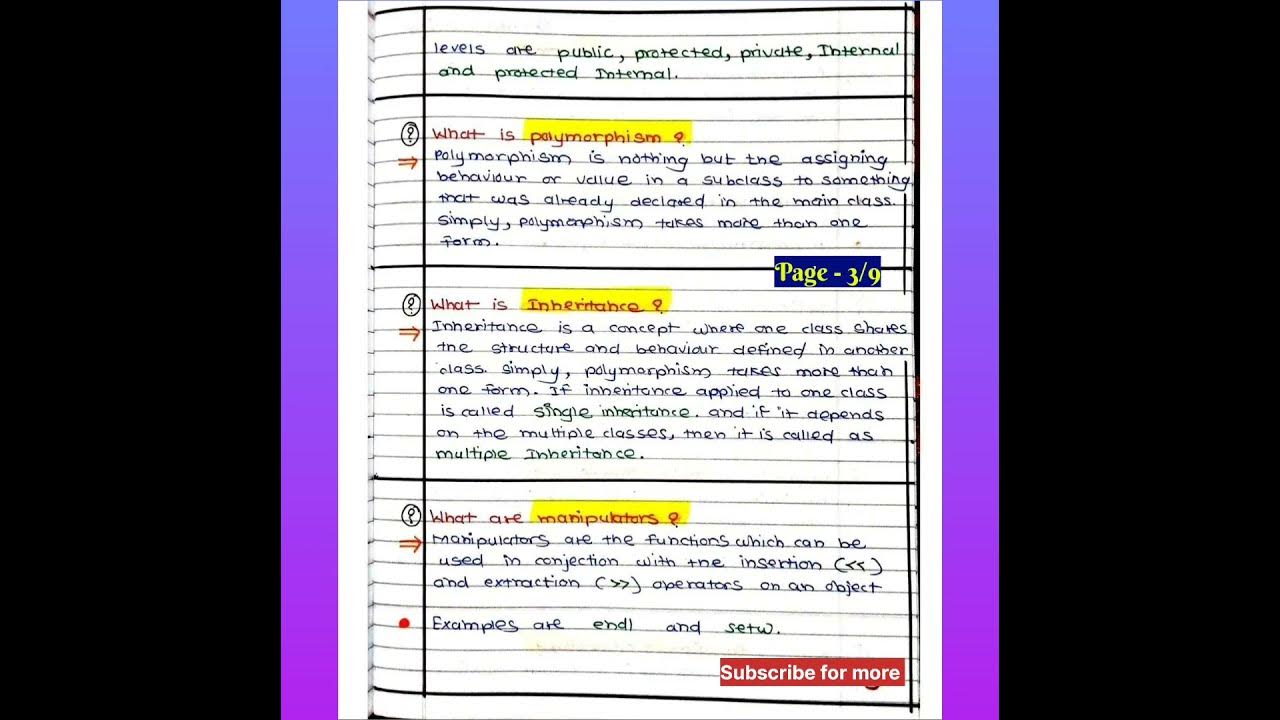 levels are public, protected, private, Internal
and protected Internal.
? What is polymorphism ?
⇒ Polymorphism is nothing but the assigning
behaviour or value in a subclass to something
that was already declared in the main class.
simply, polymorphism takes more than one
form.
Page - 3/9
? What is Inheritance ?
⇒ Inheritance is a concept where one class shares
the structure and behaviour defined in another
class. simply, polymorphism takes more than
one form. If inheritance applied to one class
is called single inheritance. and if it depends
on the multiple classes, then it is called as
multiple Inheritance.
? What are manipulators ?
⇒ Manipulators are the functions which can be
used in conjection with the insertion (<<)
and extraction (>>) operators on an object
• Examples are endl and setw.
Subscribe for more